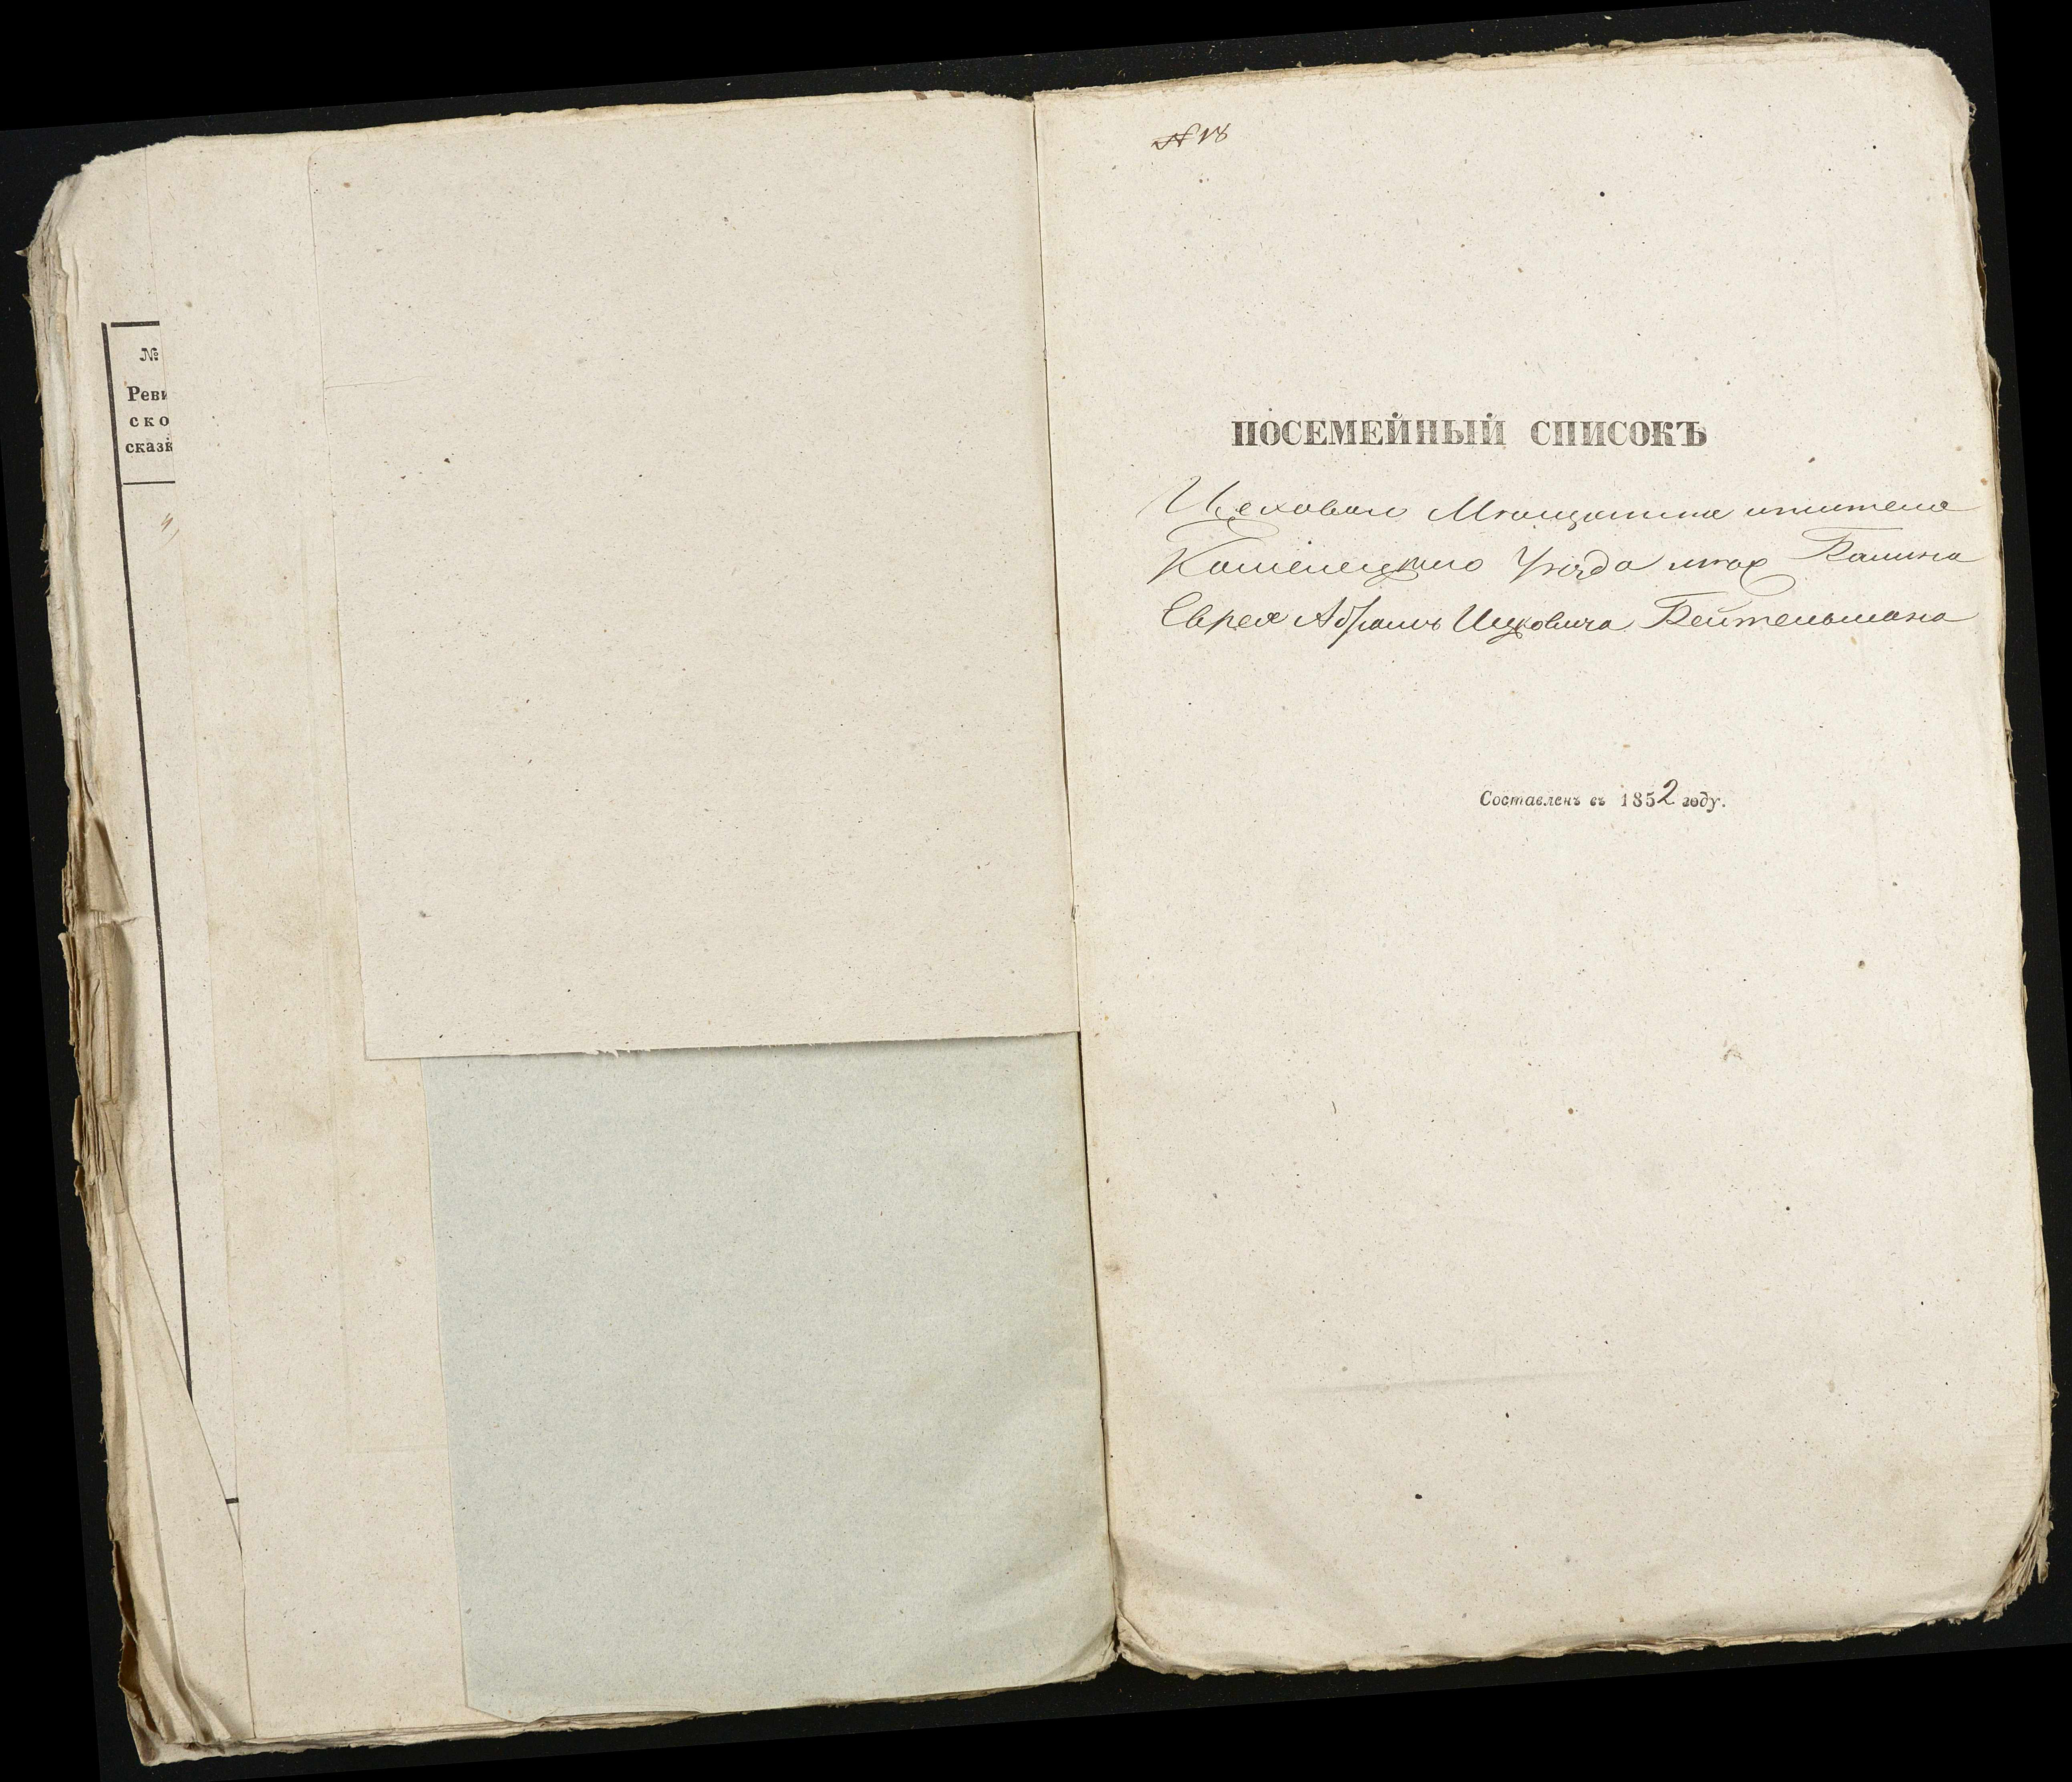 №
Реви
ско
сказк
№ 18
ПОСЕМЕЙНЫЙ СПИСОКЪ
Цеховаго Мѣщанина жителя
Каменецкаго Уѣзда мѣст Балина
Еврея Абрамъ Ицковича Бейтельмана
Составленъ въ 1852 году.